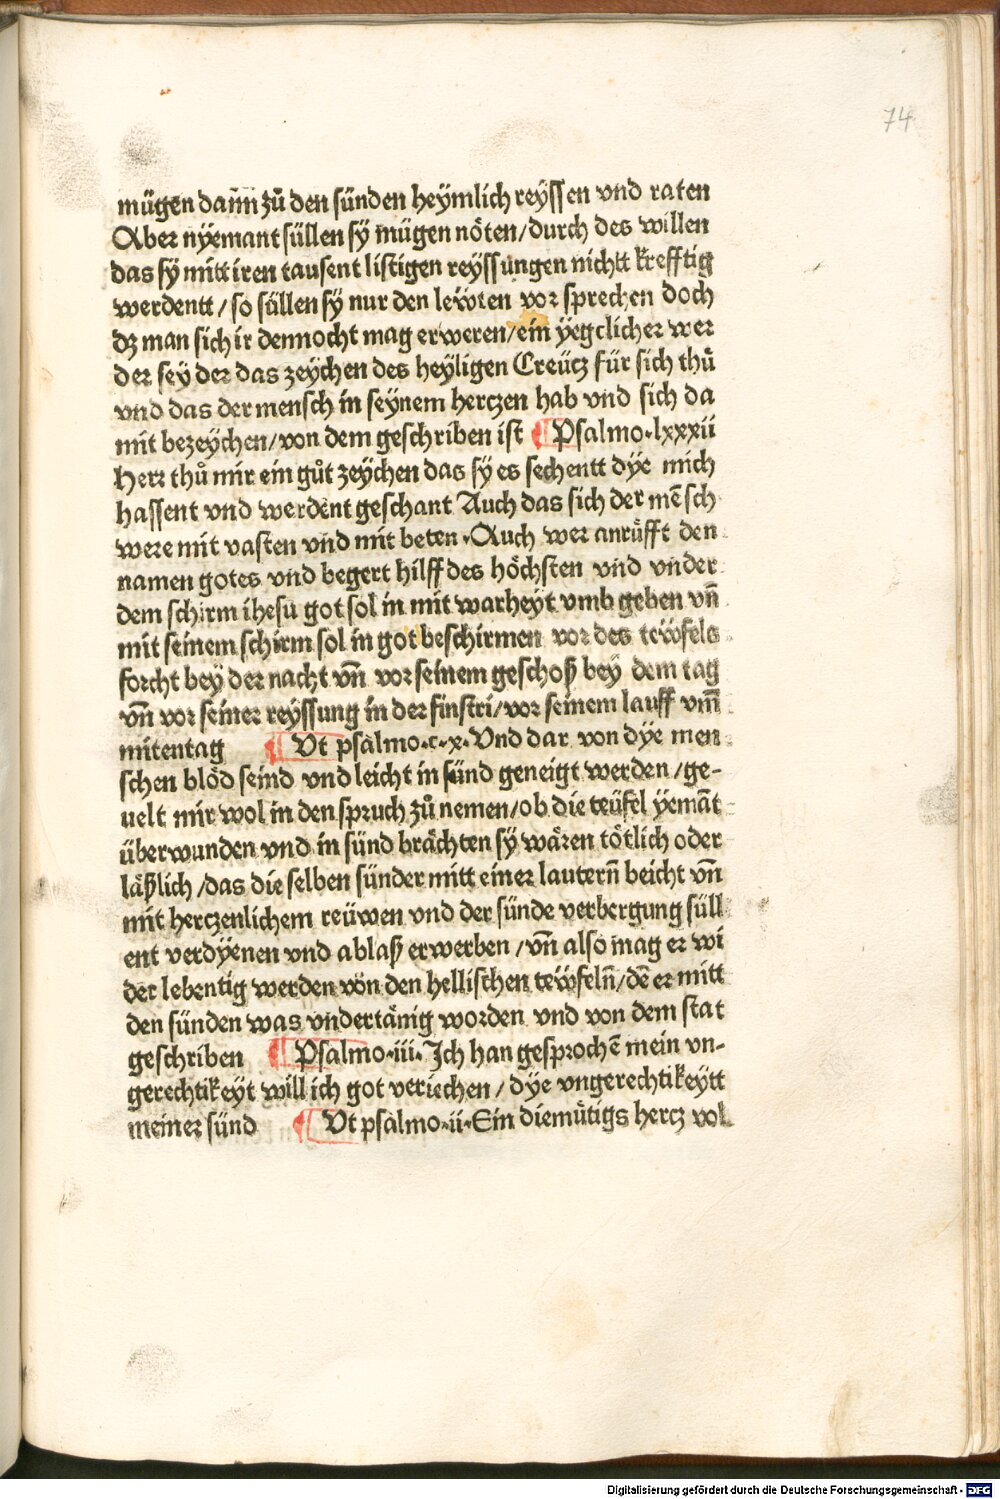 74
mügen dañn zů den sünden heÿmlich reÿssen vnd raten
Aber nÿemant süllen sÿ mügen nöten/durch des willen
das sÿ mitt iren tausent listigen reÿssungen nichtt krefftig
werdentt/so süllen sÿ nur den leẅten vor sprechen doch
dz man sich ir dennocht mag erweren/ein ÿegclicher wer
der seÿ der das zeÿchen des heÿligen Creücz für sich thů
vnd das der mensch in seÿnem herczen hab vnd sich da
mit bezeÿchen/von dem geschriben ist ¶ Psalmo.lxxxii
Herr thů mir ein gůt zeÿchen das sÿ es sechentt dÿe mich
hassent vnd werdent geschant Auch das sich der mēsch
were mit vasten vnd mit beten.Auch wer anrüfft den
namen gotes vnd begert hilff des höchsten vnd vnder
dem schirm ihesu got sol in mit warheyt vmb geben vñ
mit seinem schirm sol in got beschirmen vor des teẅfels
forcht bey der nacht vñ vor seinem geschoß bey dem tag
vñ vor seiner reÿssung in der finstri/vor seinem lauff vm̄
mitentag ¶ Vt psalmo.c.x.Vnd dar von dÿe men
schen blöd seind vnd leicht in sünd geneigt werden/ge-
uelt mir wol in den spruch zů nemen/ob die teüfel ÿemāt
überwunden vnd in sünd brächten sÿ wären tötlich oder
läßlich/das die selben sünder mitt einer lauterñ beicht vñ
mit herczenlichem reüwen vnd der sünde verbergung süll
ent verdÿenen vnd ablaß erwerben/vñ also mag er wi
der lebentig werden von den hellischen teẅfelñ/dē er mitt
den sünden was vndertänig worden vnd von dem stat
geschriben ¶ Psalmo.iii.Ich han gesprochē mein vn-
gerechtikeyt will ich got veriechen/dÿe vngerechtikeÿtt
meiner sünd ¶ Vt psalmo.ii.Ein diemütigs hercz vol
Digitalisierung gefördert durch die Deutsche Forschungsgemeinschaft - DFG